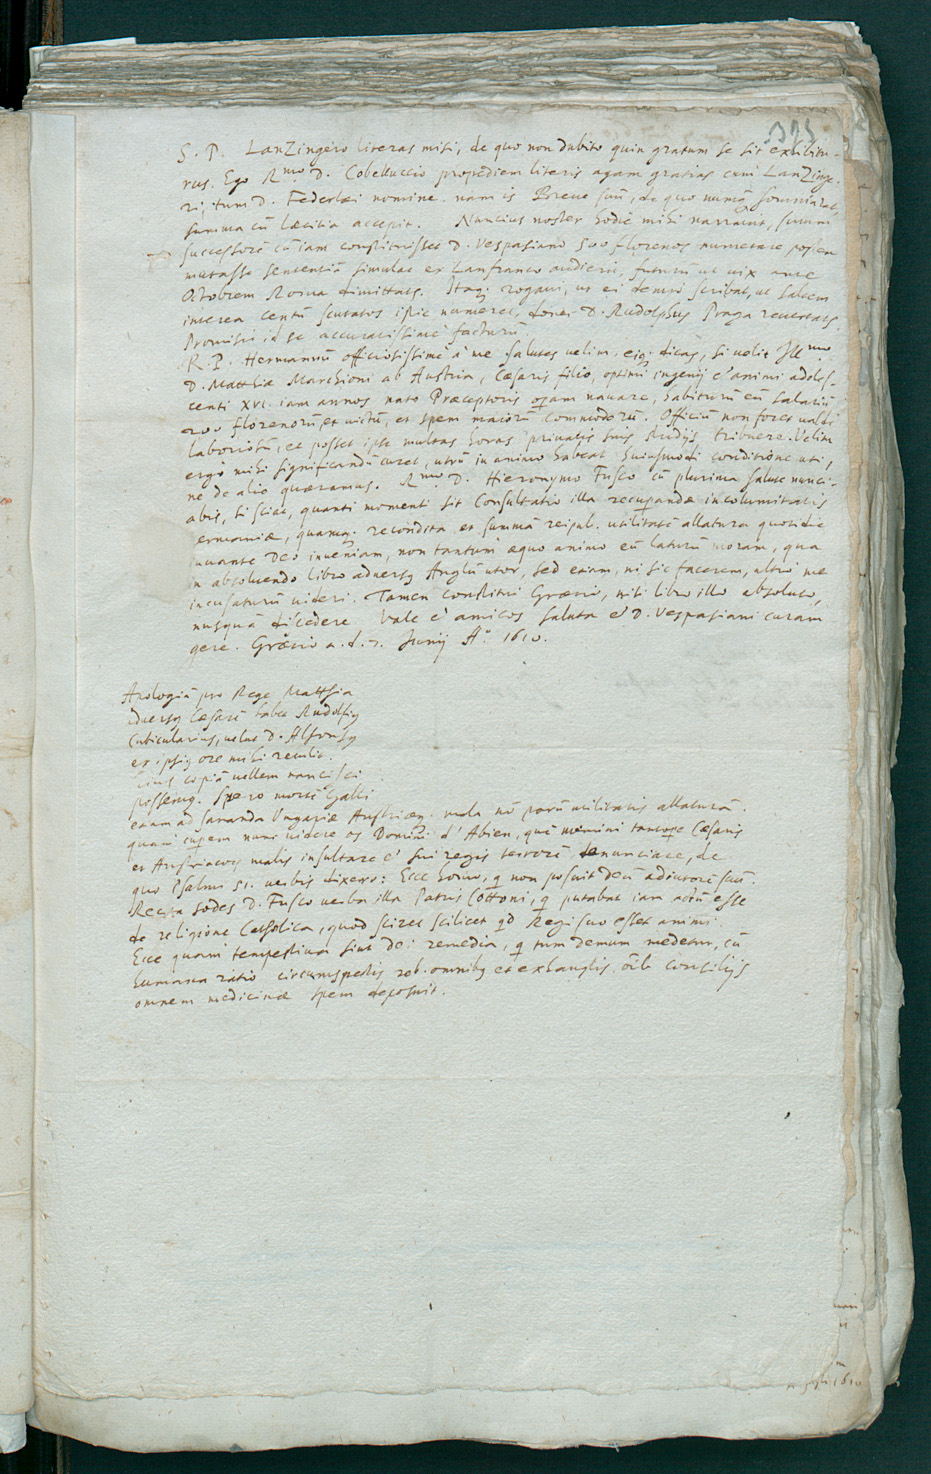 S. P. Lanzingero literas misi, de quo non dubito quin gratum se sit exhibitu-
rus. Ego Rmo D. Cobelluccio propediem literis agam gratias cum Lanzinge-
ri, tum D. Federlei nomine. nam is Breve suũ, de quo nunq̃ somniarat,
summa cũ laetitia accepit. Nuncius noster hodie mihi narravit, suum
successorẽ cũ iam constituisset D. Vespasiano 500 florenos numerare
mutasse sententiã simulac ex Lanfranco audierit, futurũ ut vix ante
Octobrem Roma dimittat. Itaq; rogavi, ut ei denuo scribat, ut saltem
interea centũ scutatos isthic numeret, donec D. Rudolphus Praga revertat.
Promisit id se accuratissimè facturũ.
R. P. Hermannũ officiosissimè à me salutes velim. eiq; dicas, si velit Illmo
D. Matthiae Marchioni ab Austria, Caesaris filio, optimi ingenij et animi adoles-
centi XVI. iam annos nato Praeceptoris operam navare, habiturũ eũ salariũ
200 florenorũ, et victũ, et spem maiorũ commodorũ. Officiũ non foret valdè
laboriosũ, et posset ipse multas horas privatis suis studijs tribuere. Velim
ergo mihi significandũ curet, utrũ in animo habeat huiusmodi conditione uti,
ne de alio quaeramus. Rmo D. Hieronymo Fusco cũ plurima salute nunci-
abis, si sciat, quanti momenti sit Consultatio illa recuperandae incolumitatis
ermaniae, quamq; recondita et summã reipub. utilitatẽ allatura quotidie
iuvante Deo inveniam, non tantum aequo animo eũ laturũ moram, qua
in absolvendo libro adversus Anglũ utor, sed etiam, ni sic facerem, ultro me
incusaturũ videri. Tamen constitui Graecio, nisi libro illo absoluto,
nusquã discedere. Vale et amicos saluta et D. Vespasiani curam
gere. Graecio a. d. 7. Junij Ao 1610.
Apologiã pro Rege Matthia
adversus Caesarẽ habet Rudolphus
Cubicularius, velut D. Alfonsus
ex ipsius ore mihi retulit.
copiã vellem nancisci
possemus. Spero mortẽ Galli
etiam ad sananda Ungariae Austriaeq; mala nõ parũ utilitatis allaturã.
quam cuperem nunc videre os Domini d'Abien, quẽ memini tantopere Caesaris
et Austriacos malis insultare et sui regis terrorẽ denunciare, de
quo Psalmi 51. verbis dixero: Ecce homo, q̃ non posuit deũ adiutorẽ suũ.
Recita sodes D. Fusco verba illa Patris Cottoni, q̃ putabat iam actũ esse
de religione Catholica, quod sciret scilicet qd Regi suo esset animi.
Ecce quam tempestiva sint Dei remedia, q̃ tum demum medetur, cũ
humana ratio circumspectis reb. omnibus et exhaustis oĩb. consilijs
omnem medicinae spem deposuit.